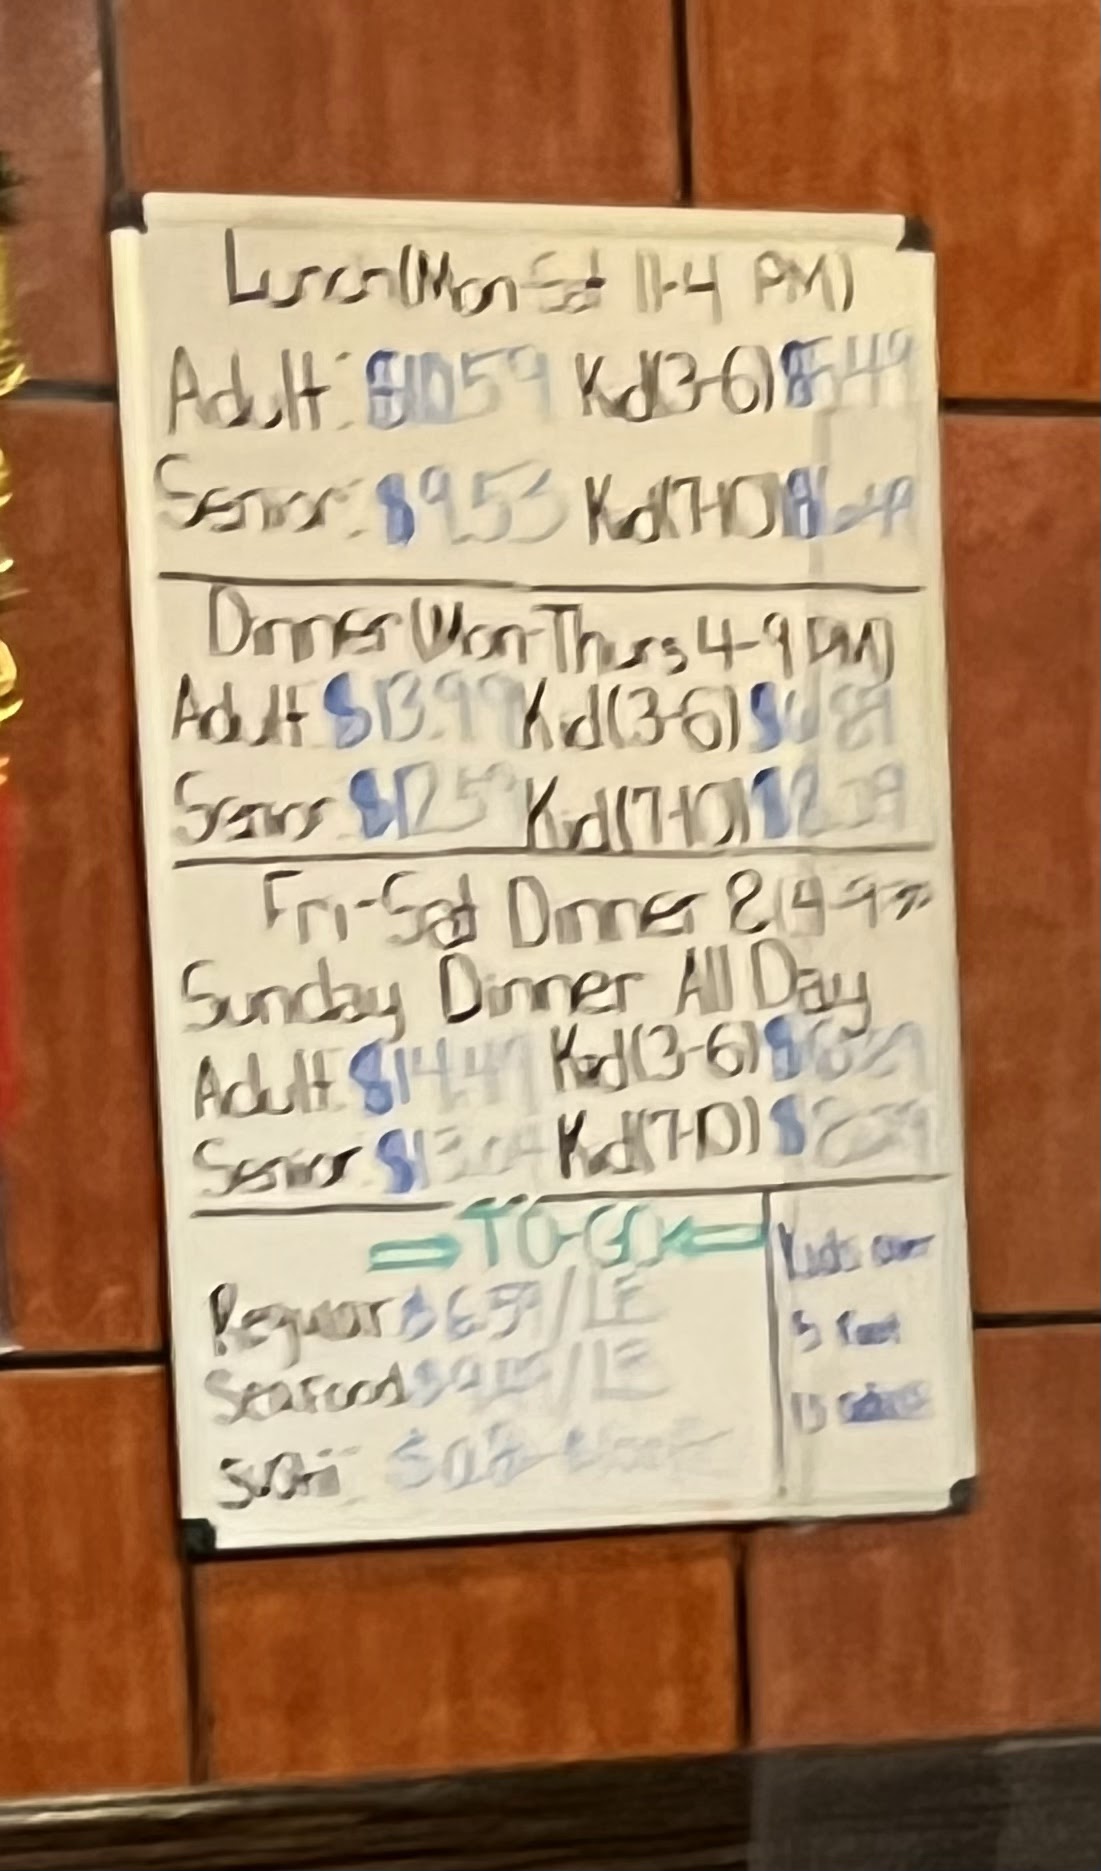 Lunch (Mon-Sat 11-4 PM)
Adult: $10.59 Kid(3-6) $5.49
Senior: $9.53 Kid(7-10)
Dinner (Mon-Thurs 4-9 PM)
Adult $13.99 Kid(3-6) $6.89
Senior $12.59 Kid(7-10)
Fri-Sat Dinner & (4-9
Sunday Dinner All Day
Adult $14.49 Kid(3-6)
Senior $13.04 Kid(7-10)
TO-GO
Regular $6.59/LB
Seafood /LB
Sushi
Kids over
5 feet
is